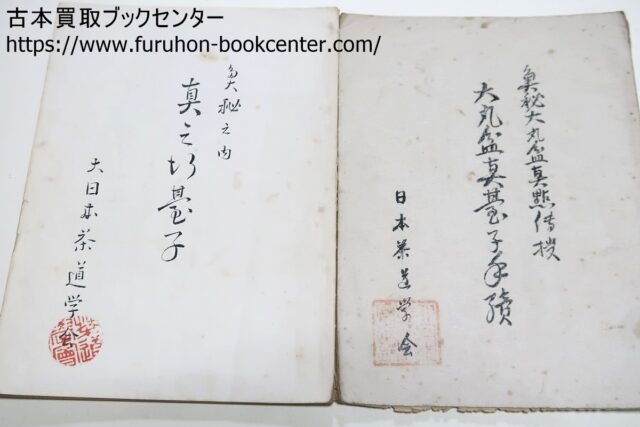 古本買取ブックセンター
https://www.furuhon-bookcenter.com/
奥秘大丸盆真點傳授
大丸盆真臺子手續
日本茶道学会
奥秘之内
真之行臺子
大日本茶道学会